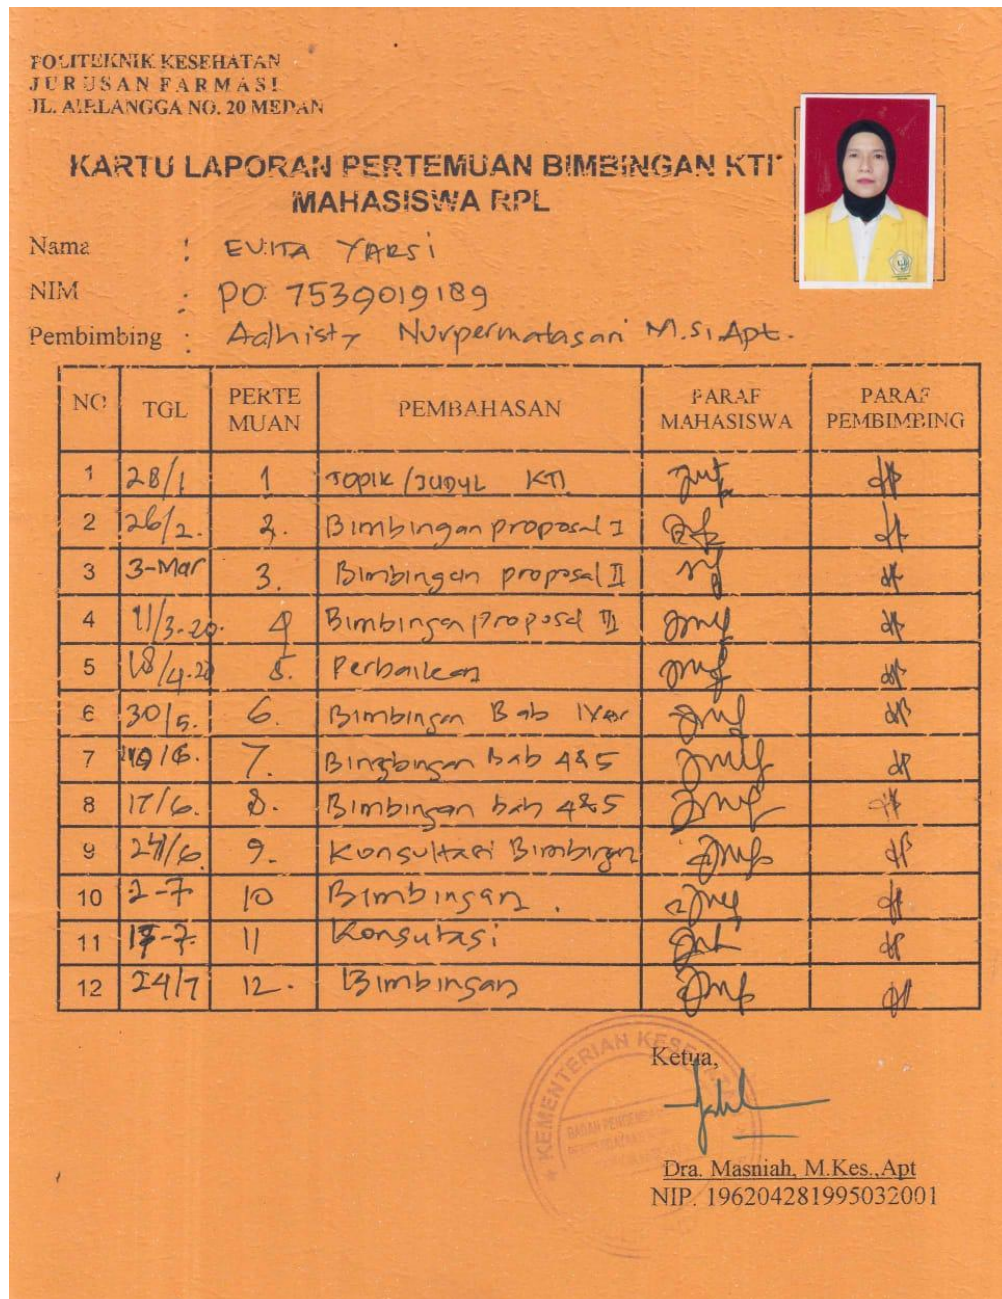 POLITEKNIK KESEHATAN
JURUSAN FARMASI
JL. AIRLANGGA NO. 20 MEDAN
KARTU LAPORAN PERTEMUAN BIMBINGAN KTI
MAHASISWA RPL
Nama : EVITA YARSI
NIM : PO 7539019189
Pembimbing : Adhisty Nurpermatasari M.Si, Apt.
NO TGL PERTE MUAN PEMBAHASAN PARAF MAHASISWA PARAF PEMBIMBING
1 28/1 1 TOPIK/JUDUL KTI
2 26/2. 2. Bimbingan proposal I
3 3-Mar 3. Bimbingan proposal II
4 11/3-20. 4 Bimbingan proposal III
5 18/4-20 5. Perbaikan
6 30/5. 6. Bimbingan Bab
7 /6. 7. Bimbingan bab 4&5
8 17/6. 8. Bimbingan bab 4&5
9 24/6 9. Konsultasi Bimbingan
10 2-7 10 Bimbingan.
11 -7. 11 Konsutasi
12 24/7 12. Bimbingan
KEMENTERIAN
Ketua,
Dra. Masniah, M.Kes.,Apt
NIP. 196204281995032001